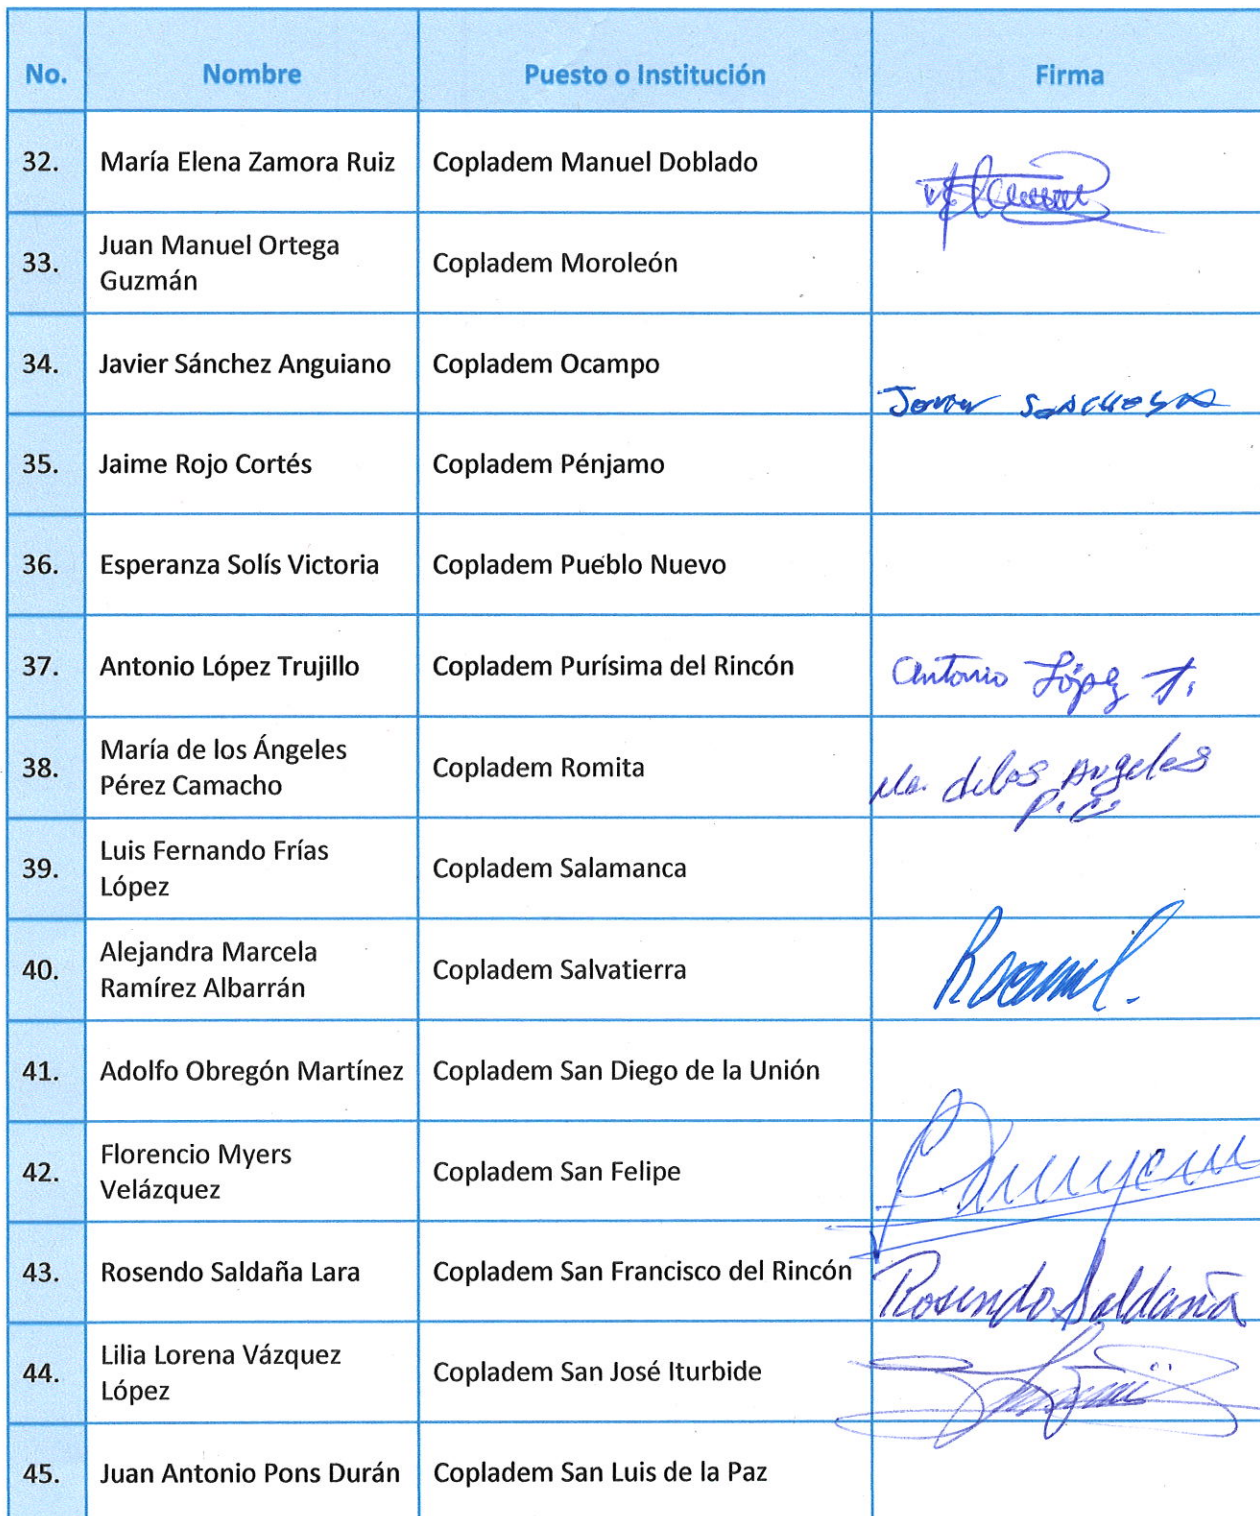 No. Nombre Puesto o Institución Firma
32. María Elena Zamora Ruiz Copladem Manuel Doblado
33. Juan Manuel Ortega Guzmán Copladem Moroleón
34. Javier Sánchez Anguiano Copladem Ocampo
35. Jaime Rojo Cortés Copladem Pénjamo
36. Esperanza Solís Victoria Copladem Pueblo Nuevo
37. Antonio López Trujillo Copladem Purísima del Rincón Antonio López T.
38. María de los Ángeles Pérez Camacho Copladem Romita Ma. de los Angeles P. C.
39. Luis Fernando Frías López Copladem Salamanca
40. Alejandra Marcela Ramírez Albarrán Copladem Salvatierra
41. Adolfo Obregón Martínez Copladem San Diego de la Unión
42. Florencio Myers Velázquez Copladem San Felipe
43. Rosendo Saldaña Lara Copladem San Francisco del Rincón Rosendo Saldaña
44. Lilia Lorena Vázquez López Copladem San José Iturbide
45. Juan Antonio Pons Durán Copladem San Luis de la Paz